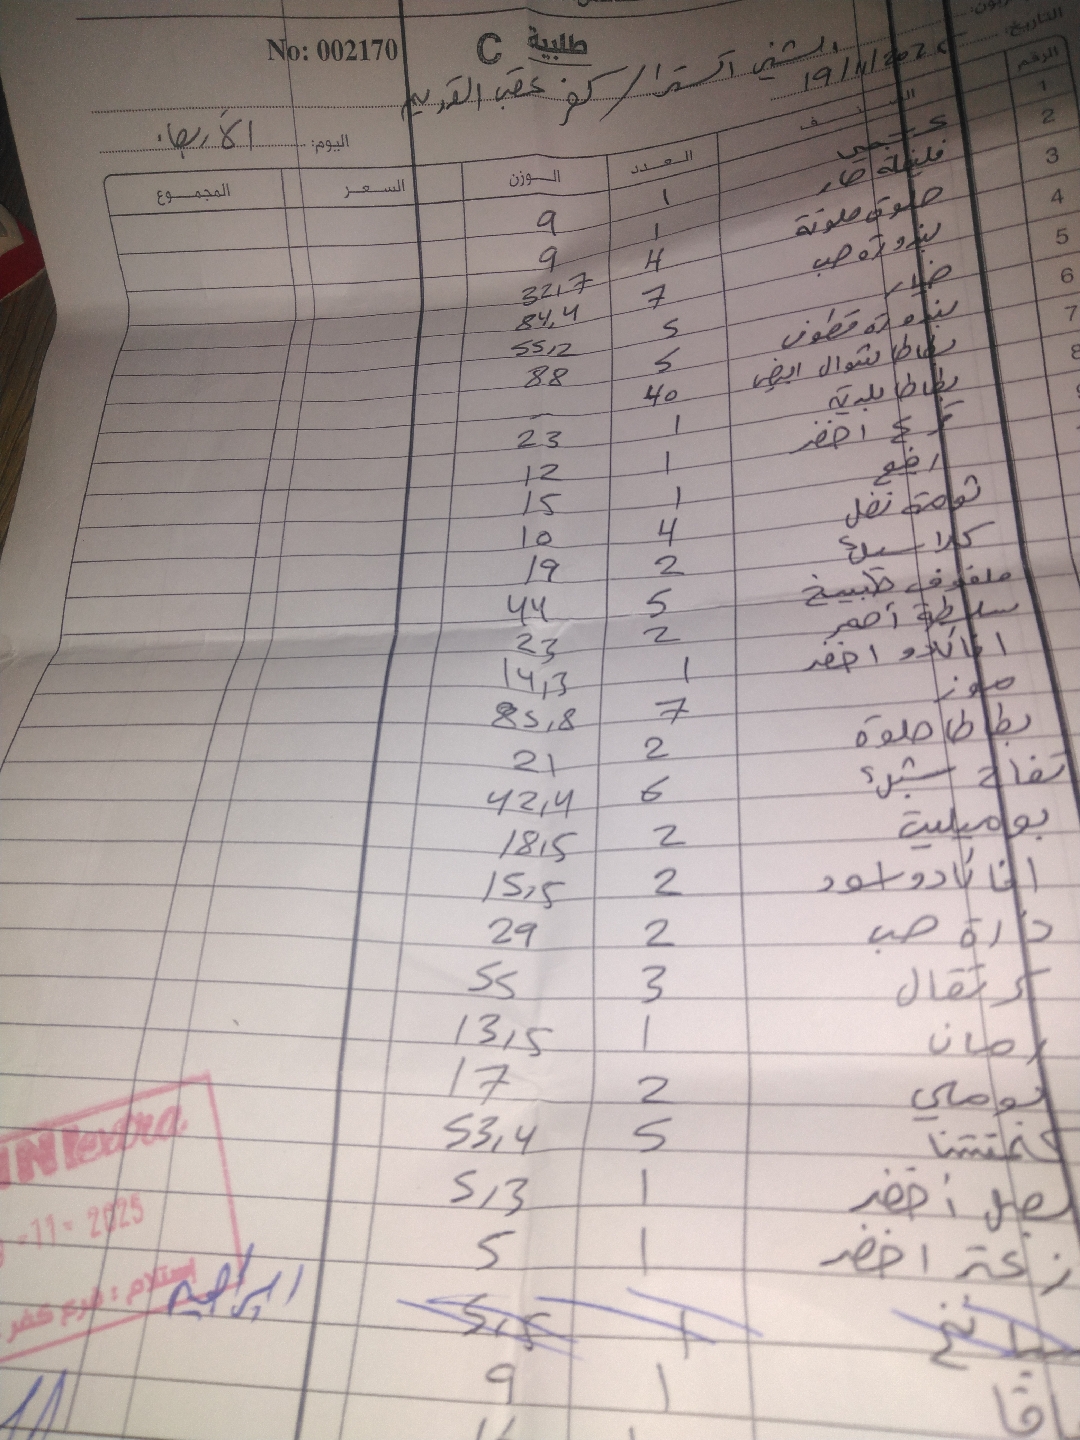 No: 002170
طلبية C
التاريخ: 19/11/2025
الشني اكسترا / كفر عقب القديم
اليوم: الأربعاء
الرقم الصنف العدد الوزن السعر المجموع
1 عجمي 1 9
2 فليفلة حار 1 9
3 حلوة ملونة 4 32,7
4 بندورة حب 7 84,4
5 خيار 5 55,2
6 بندورة قطوف 5 88
7 بطاطا شوال ابيض 40
8 بطاطا بلدية 1 23
كرع اخضر 1 12
1 15
ثومة نفل 4 10
2 19
ملفوف طبيخ 5 44
سلطة أحمر 2 23
افاكادو اخضر 1 14,3
موز 7 85,8
بطاطا حلوة 2 21
تفاح 6 42,4
بوميلية 2 18,5
افاكادو اسود 2 15,5
ذرة حب 2 29
برتقال 3 55
رمان 1 13,5
بوملي 2 17
كلمنتينا 5 53,4
بصل أخضر 1 5,3
زعتر اخضر 1 5
سبانخ 1 5,5
1 9
extra
-11- 2025
استلام : فرع كفر
ابراهيم